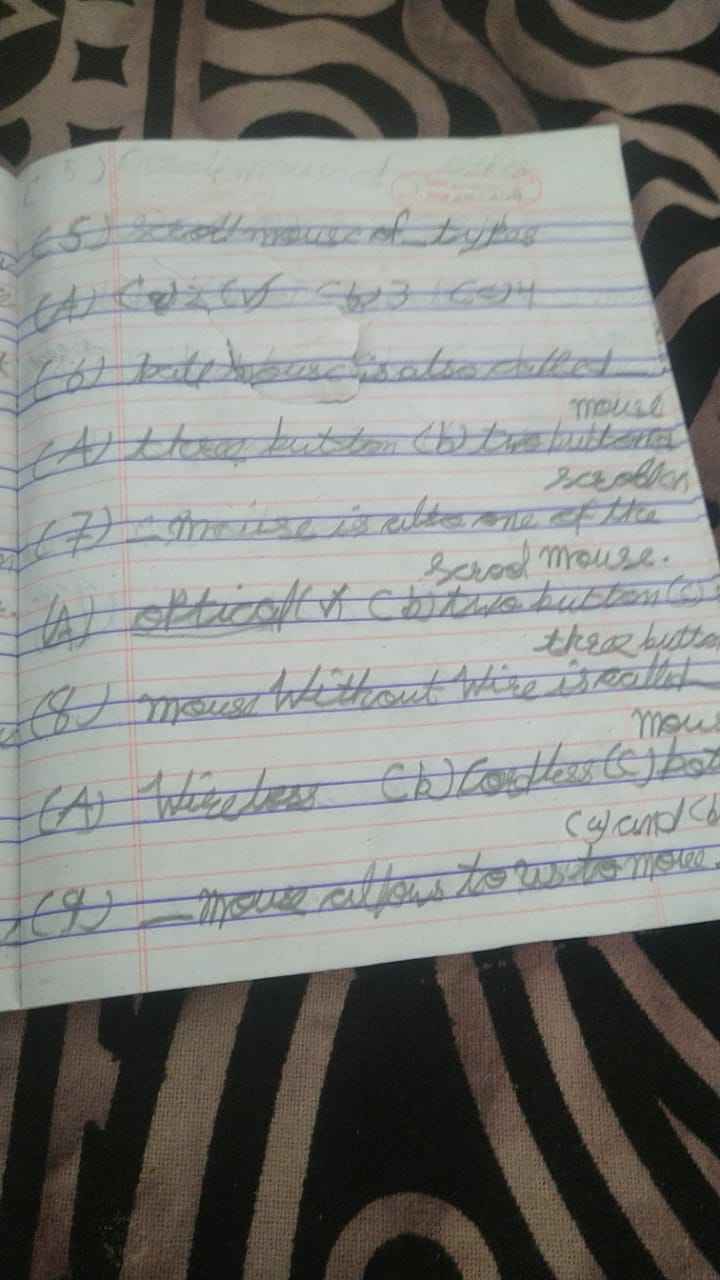 (5) Scroll mouse of types
(A) (a) 2 (✓) (b) 3 (c) 4
(6) mouse is also called
mouse
(A) three button (b) two button
(7) — Mouse is also one of the
mouse.
(A) optical (b) two button (c)
three button
(8) mouse Without Wire is called
mou
(A) Wireless (b) Cordless (c) bot
(a) and (b
(9) — mouse allows to us to move